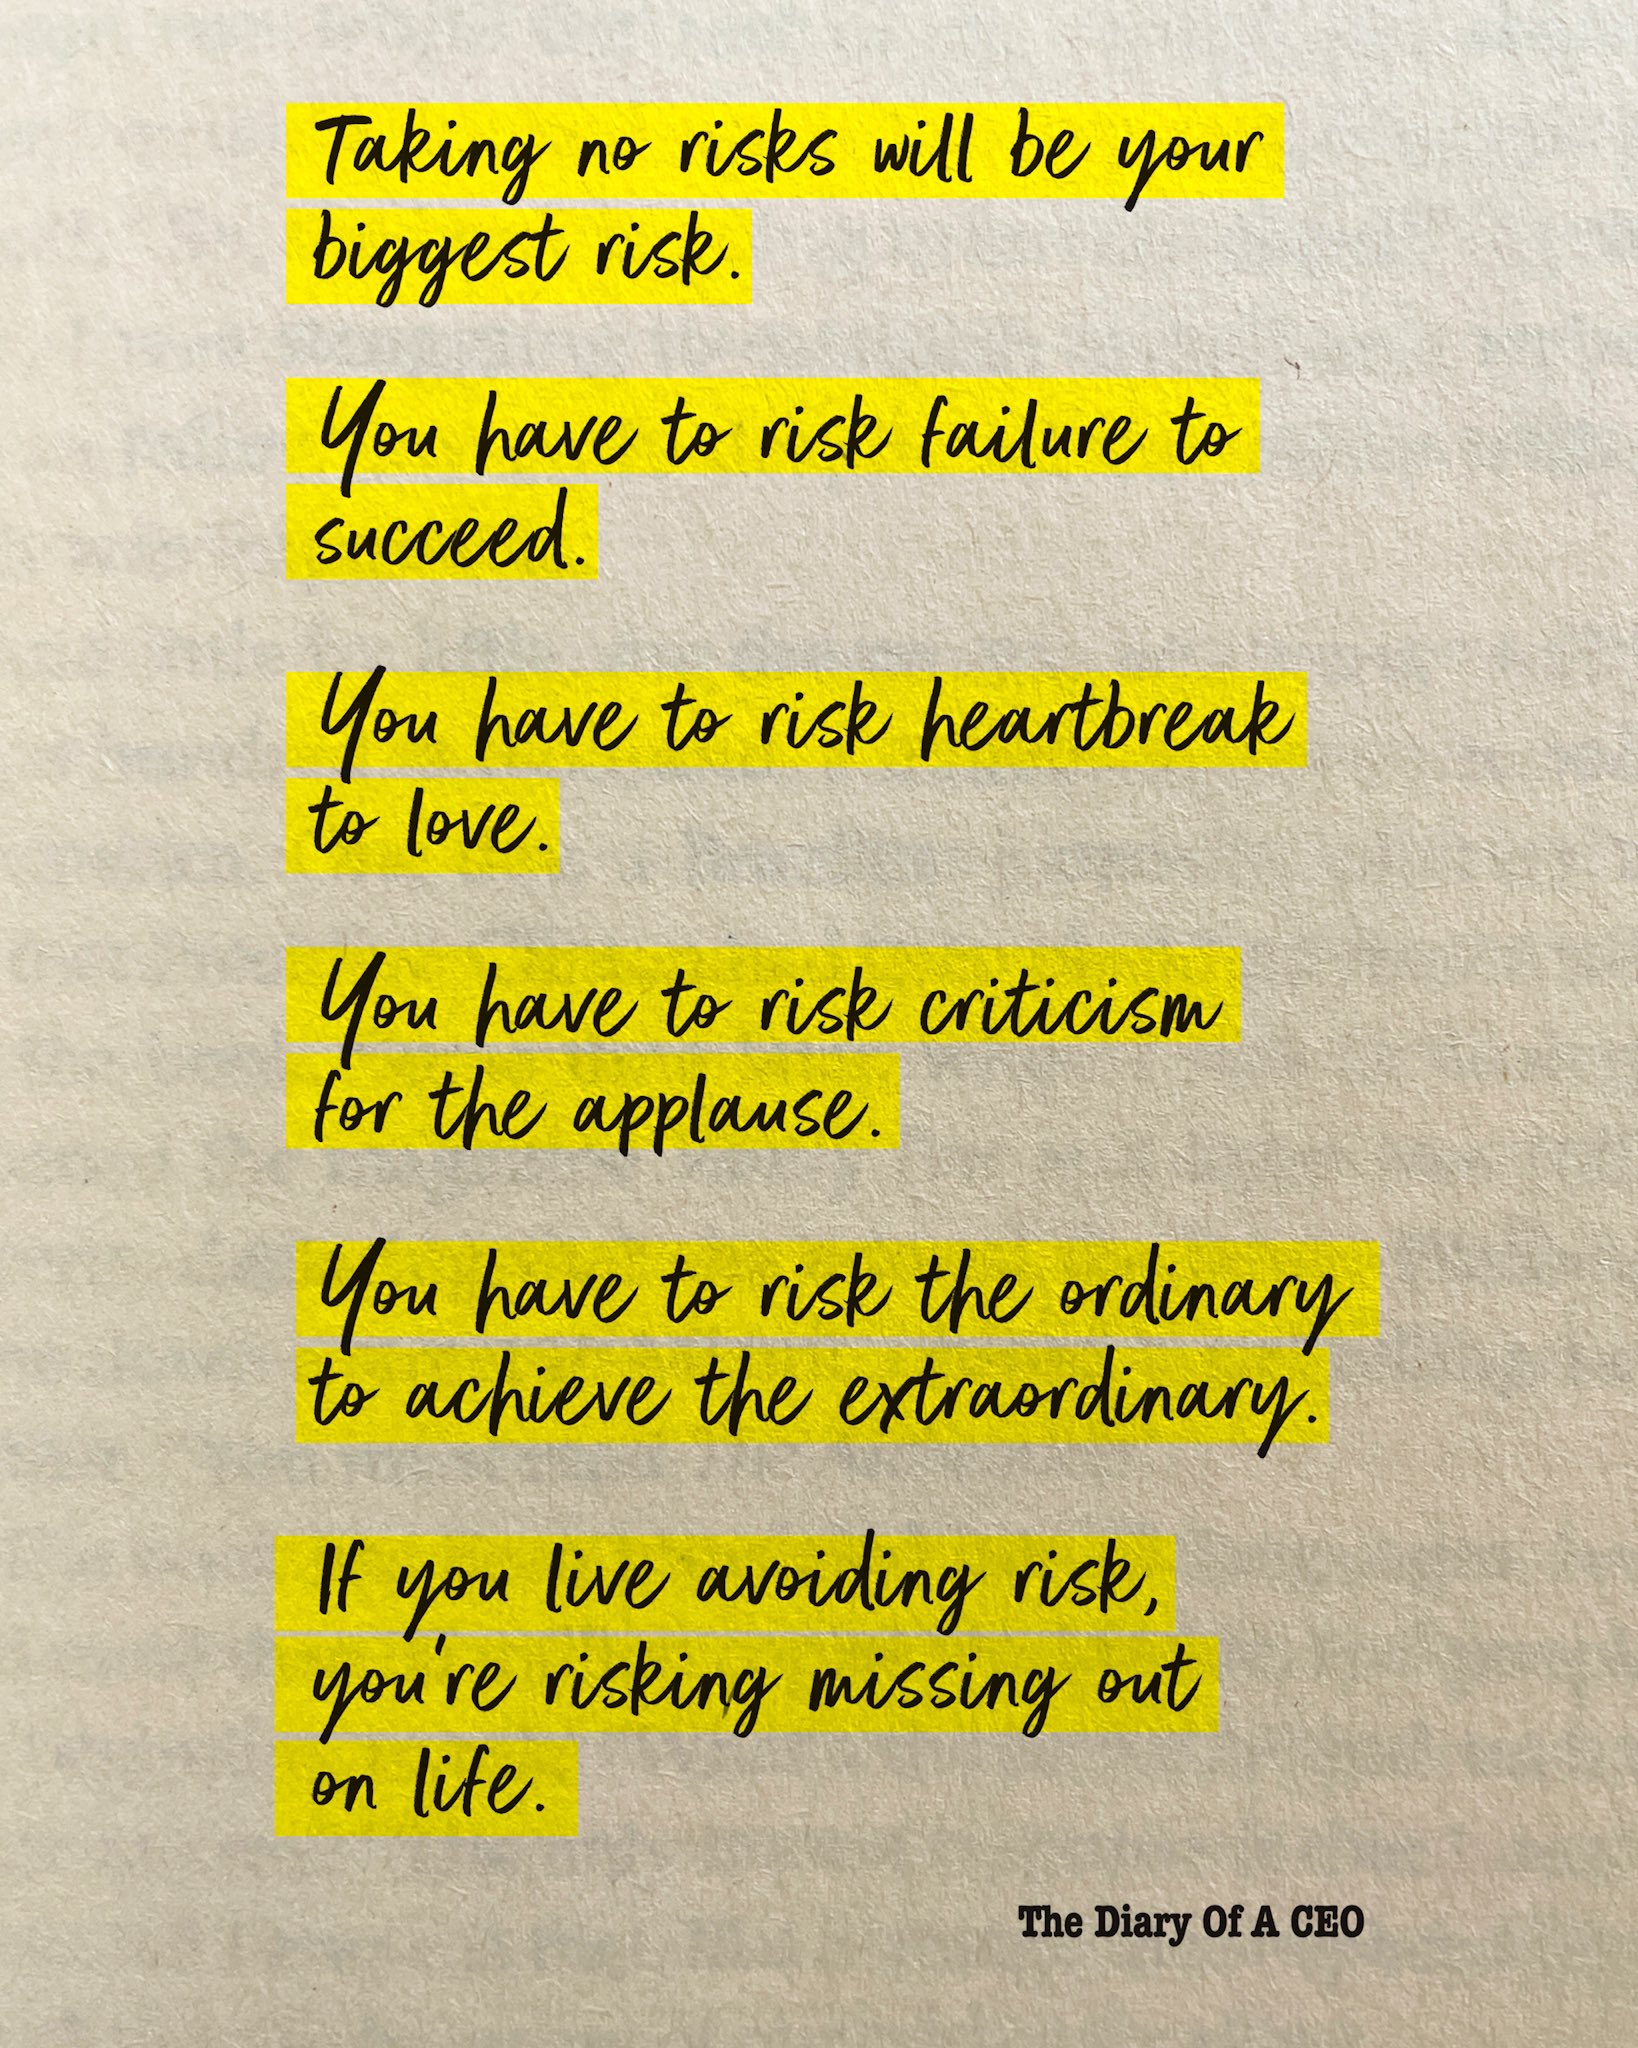 Taking no risks will be your
biggest risk.
You have to risk failure to
succeed.
You have to risk heartbreak
to love.
You have to risk criticism
for the applause.
You have to risk the ordinary
to achieve the extraordinary.
If you live avoiding risk,
you're risking missing out
on life.
The Diary Of A CEO